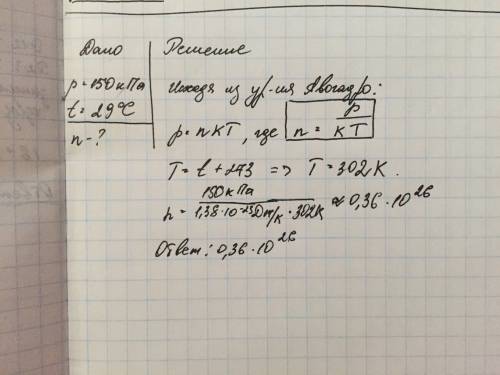 Дано
p = 150 кПа
t = 29°C
n - ?
Решение
Исходя из ур-ия Авогадро:
p = nkT, где n = p / kT
T = t + 273 => T = 302 K.
n = 150 кПа / 1,38 · 10⁻²³ Дж/к · 302K ≈ 0,36 · 10²⁶
Ответ: 0,36 · 10²⁶